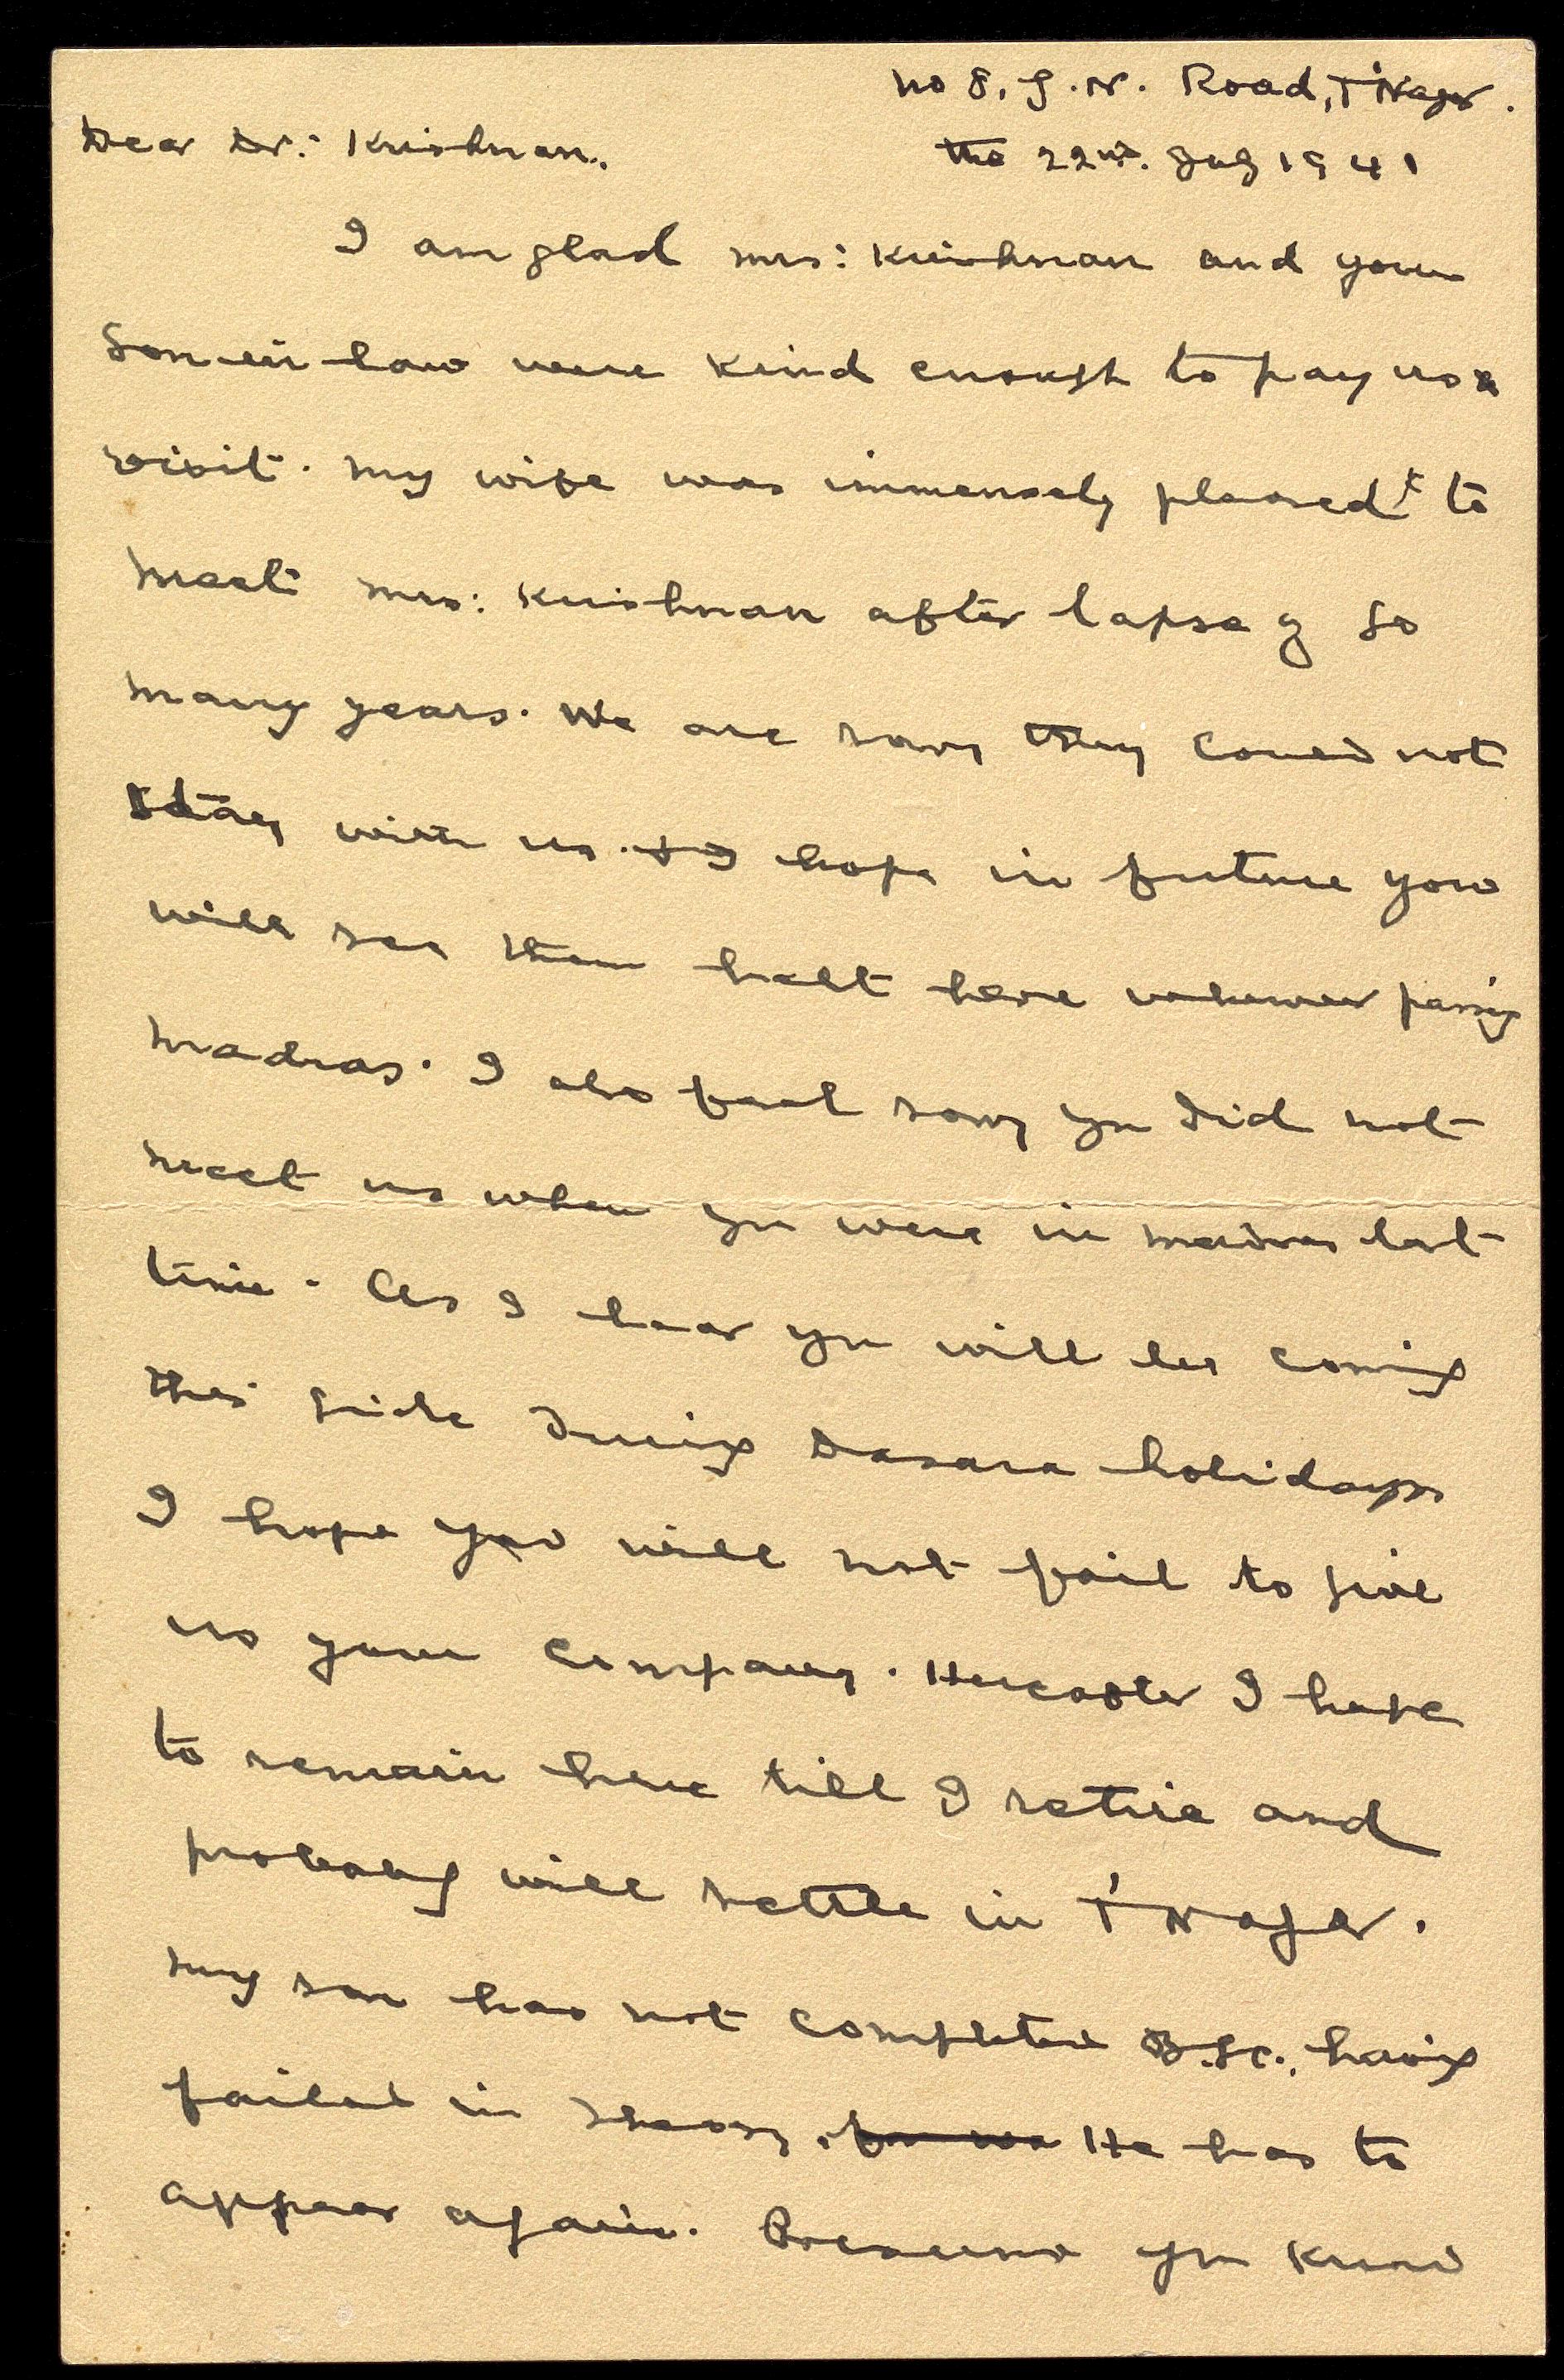 No 8, G.N. Road, T'Nagar.
Dear Dr: Krishnan,
the 22nd. July 1941
I am glad Mrs: Krishnan and your
Son-in-law were kind enough to pay us a
visit. My wife was immensely pleased to
meet Mrs: Krishnan after lapse of so
many years. We are sorry they could not
stay with us. I hope in future you
will see them halt here whenever passing
Madras. I also feel sorry you did not
meet us when you were in Madras last
time. As I hear you will be coming
this side during Dasara holidays
I hope you will not fail to give
us your company. Hereafter I hope
to remain here till I retire and
probably will settle in T'Nagar.
My son has not completed B.Sc., having
failed in theory. He has to
appear again. Presume you know